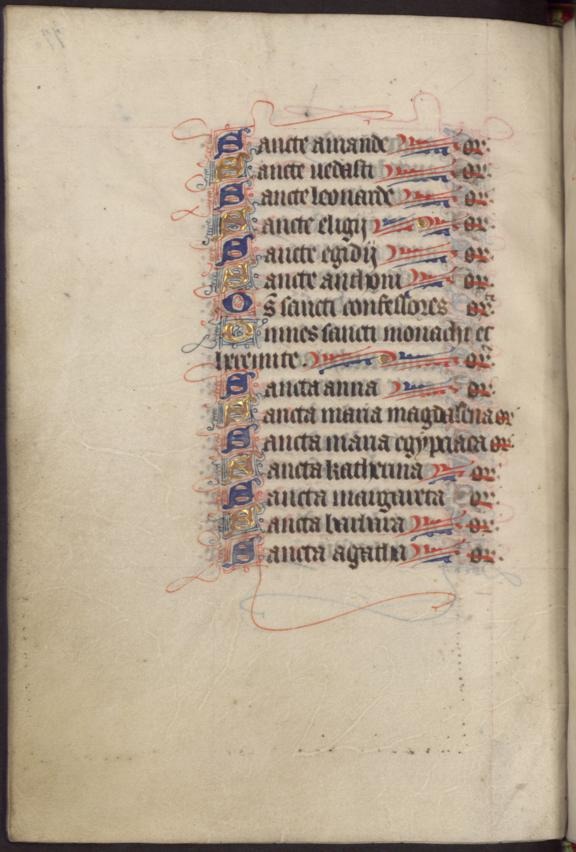 Sancte amande or.
Sancte vedaste or.
Sancte leonarde or.
Sancte eligii or.
Sancte egidii or.
Sancte anthoni or.
Os sancti confessores or.
Omnes sancti monachi et
heremite. or.
Sancta anna or.
Sancta maria magdalena or.
Sancta maria egypciaca or.
Sancta katherina or.
Sancta margareta or.
Sancta barbara or.
Sancta agatha or.